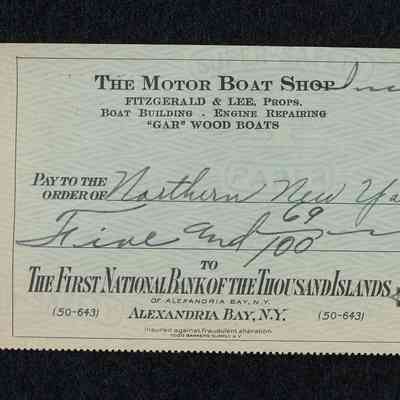 THE MOTOR BOAT SHOP
FITZGERALD & LEE, PROPS.
BOAT BUILDING . ENGINE REPAIRING
"GAR" WOOD BOATS
PAY TO THE
ORDER OF Northern New Yo
Five and 69/100
TO
THE FIRST NATIONAL BANK OF THE THOUSAND ISLANDS
OF ALEXANDRIA BAY, N.Y.
(50-643) ALEXANDRIA BAY, N.Y. (50-643)
Insured against fraudulent alteration
TODD BANKERS SUPPLY N.Y.